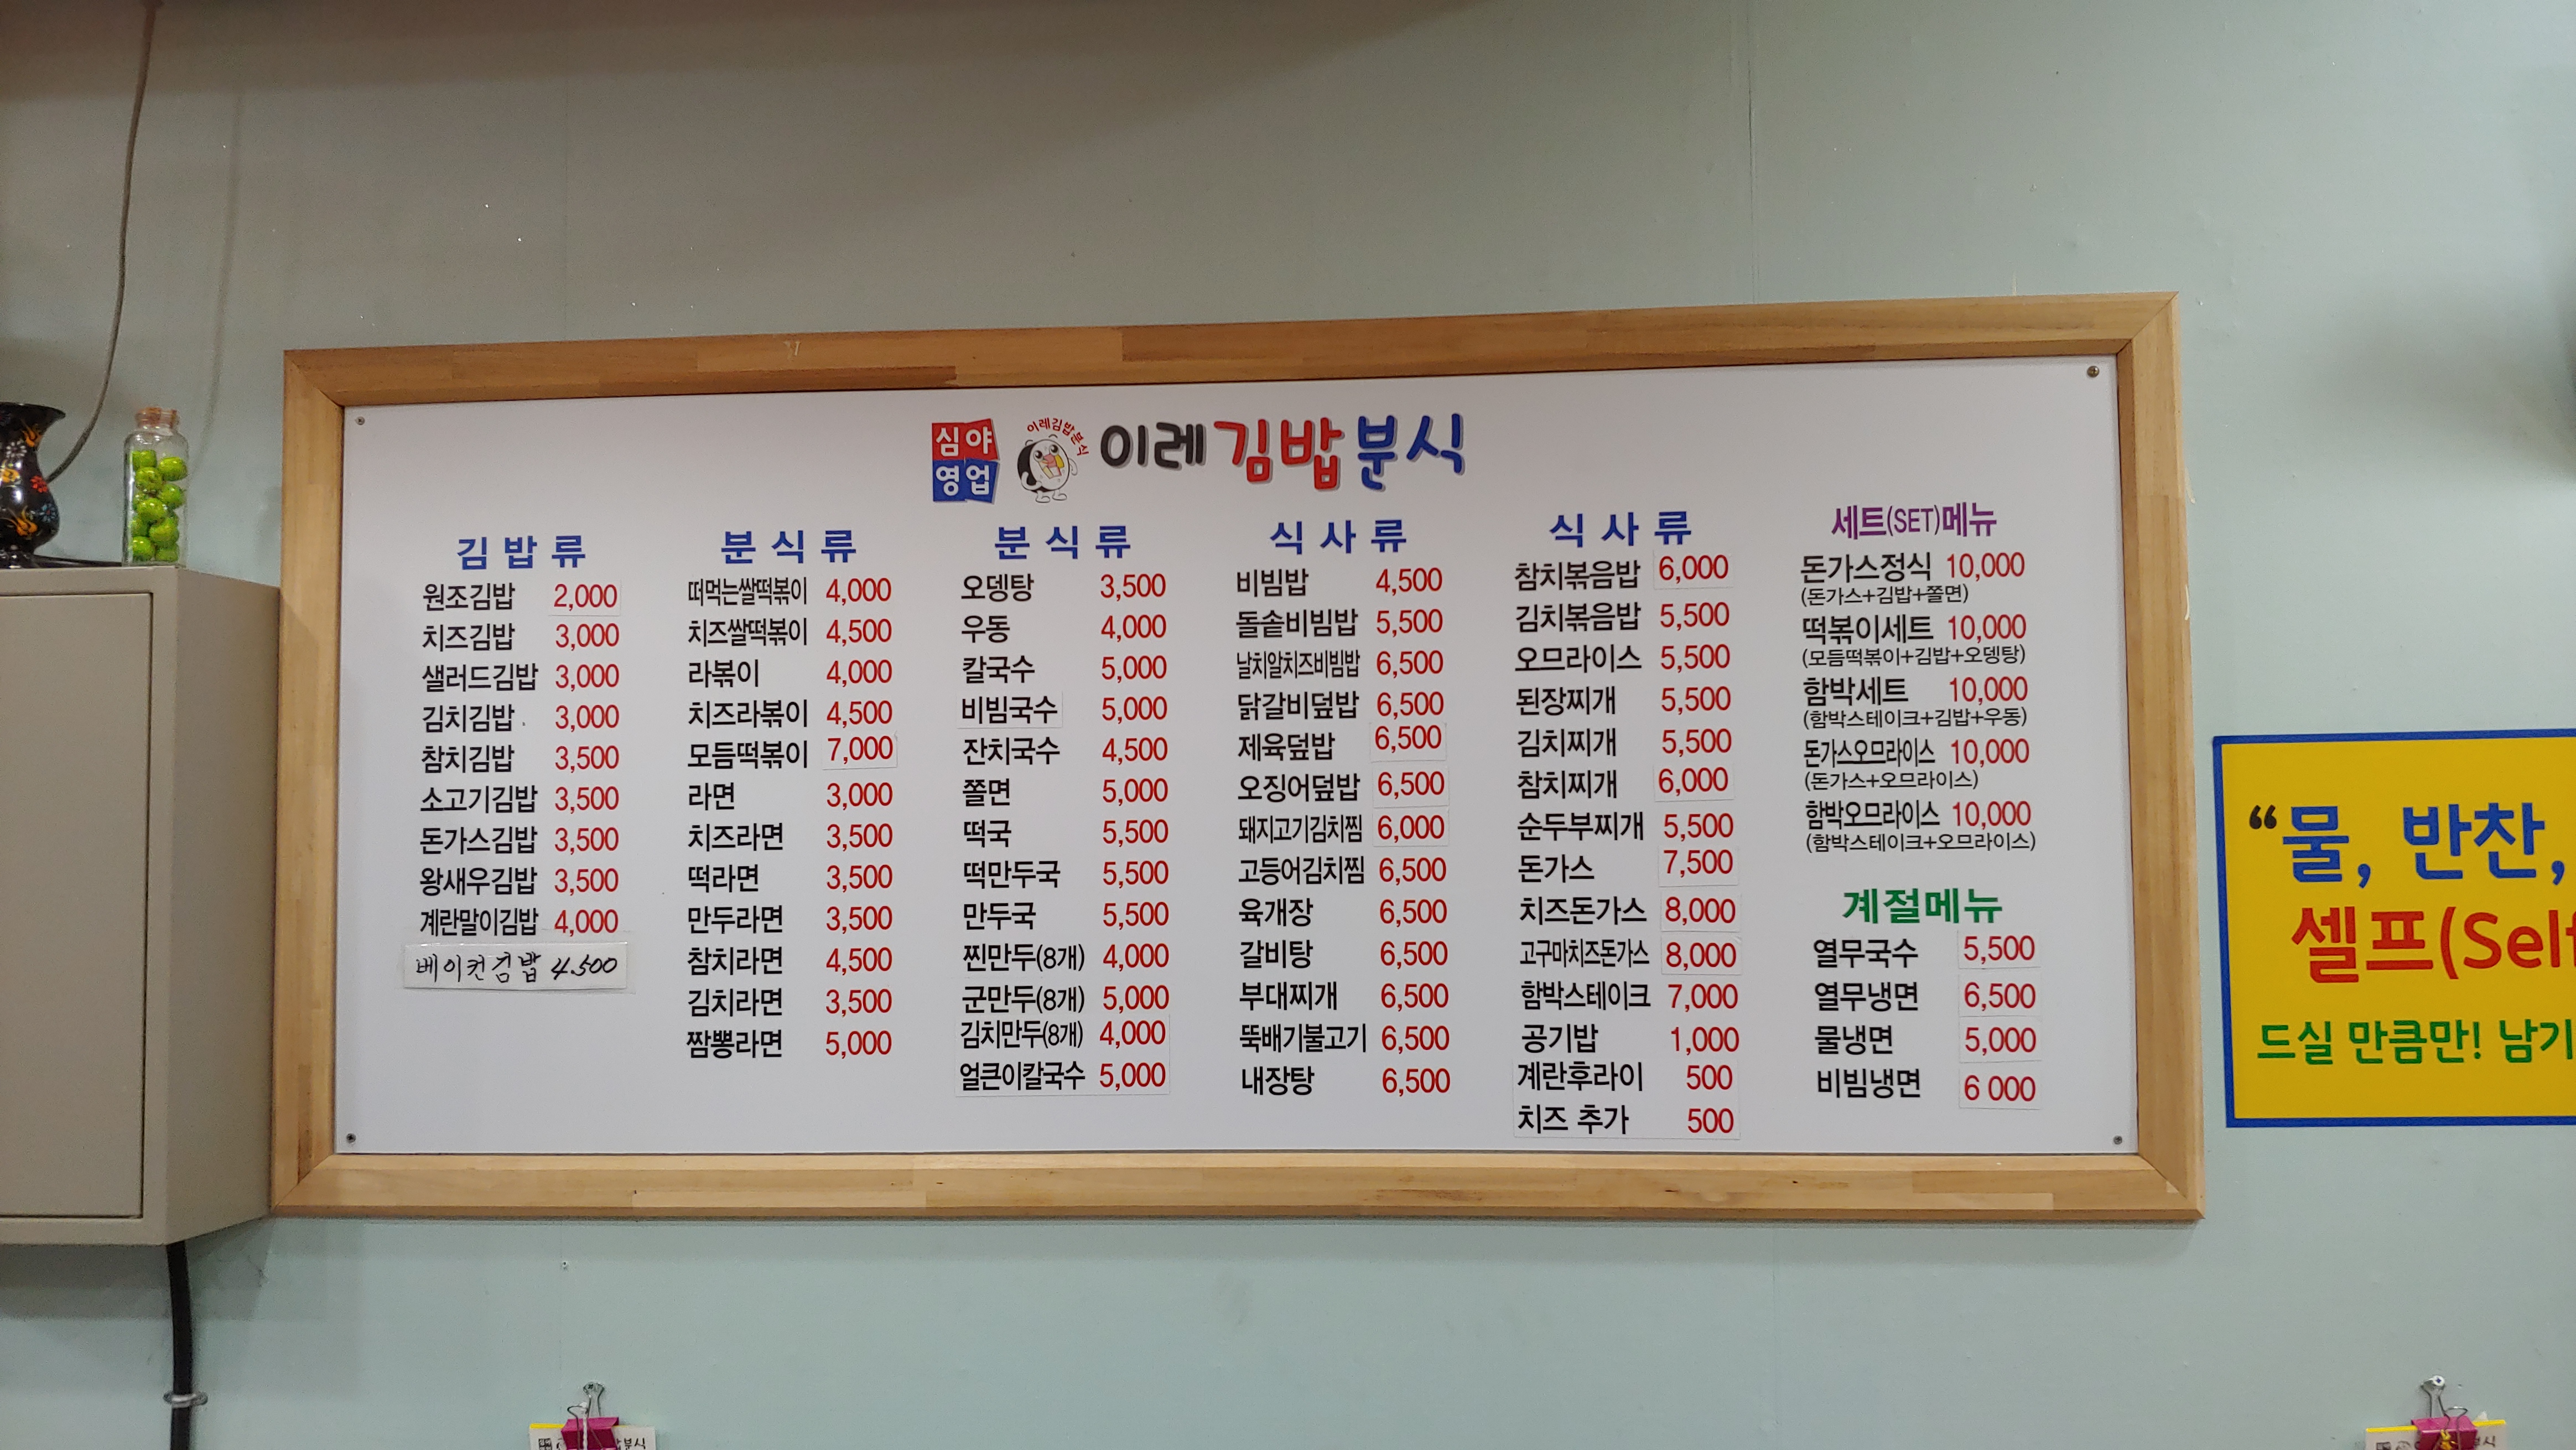 심야
영업
이레김밥분식
이레김밥분식
김밥류
원조김밥 2,000
치즈김밥 3,000
샐러드김밥 3,000
김치김밥 3,000
참치김밥 3,500
소고기김밥 3,500
돈가스김밥 3,500
왕새우김밥 3,500
계란말이김밥 4,000
베이컨김밥 4.500
분식류
떠먹는쌀떡볶이 4,000
치즈쌀떡볶이 4,500
라볶이 4,000
치즈라볶이 4,500
모듬떡볶이 7,000
라면 3,000
치즈라면 3,500
떡라면 3,500
만두라면 3,500
참치라면 4,500
김치라면 3,500
짬뽕라면 5,000
분식류
오뎅탕 3,500
우동 4,000
칼국수 5,000
비빔국수 5,000
잔치국수 4,500
쫄면 5,000
떡국 5,500
떡만두국 5,500
만두국 5,500
찐만두(8개) 4,000
군만두(8개) 5,000
김치만두(8개) 4,000
얼큰이칼국수 5,000
식사류
비빔밥 4,500
돌솥비빔밥 5,500
날치알치즈비빔밥 6,500
닭갈비덮밥 6,500
제육덮밥 6,500
오징어덮밥 6,500
돼지고기김치찜 6,000
고등어김치찜 6,500
육개장 6,500
갈비탕 6,500
부대찌개 6,500
뚝배기불고기 6,500
내장탕 6,500
식사류
참치볶음밥 6,000
김치볶음밥 5,500
오므라이스 5,500
된장찌개 5,500
김치찌개 5,500
참치찌개 6,000
순두부찌개 5,500
돈가스 7,500
치즈돈가스 8,000
고구마치즈돈가스 8,000
함박스테이크 7,000
공기밥 1,000
계란후라이 500
치즈 추가 500
세트(SET)메뉴
돈가스정식 10,000
(돈가스+김밥+쫄면)
떡볶이세트 10,000
(모듬떡볶이+김밥+오뎅탕)
함박세트 10,000
(함박스테이크+김밥+우동)
돈가스오므라이스 10,000
(돈가스+오므라이스)
함박오므라이스 10,000
(함박스테이크+오므라이스)
계절메뉴
열무국수 5,500
열무냉면 6,500
물냉면 5,000
비빔냉면 6 000
“물, 반찬,
셀프(Self
드실 만큼만! 남기
밥분식
분식